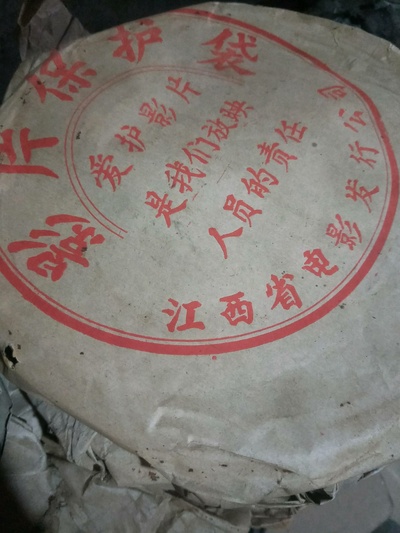 影片保护袋
爱护影片
是我们放映
人员的责任
江西省电影发行公司